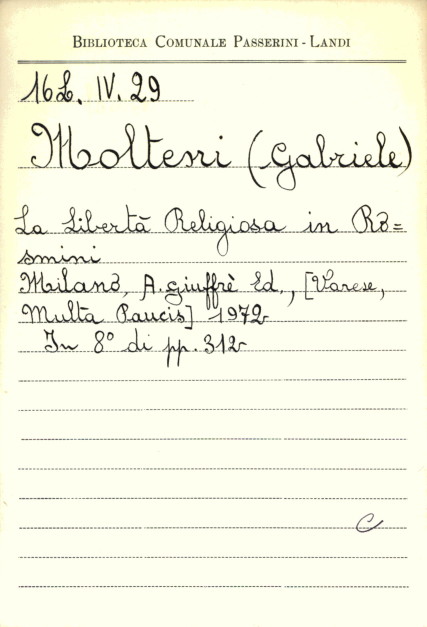 BIBLIOTECA COMUNALE PASSERINI - LANDI
16L. IV. 29
Molteni (Gabriele)
La Libertà Religiosa in Ro=
smini
Milano, A. Giuffrè Ed., [Varese,
Multa Paucis] 1972
In 8° di pp. 312
C